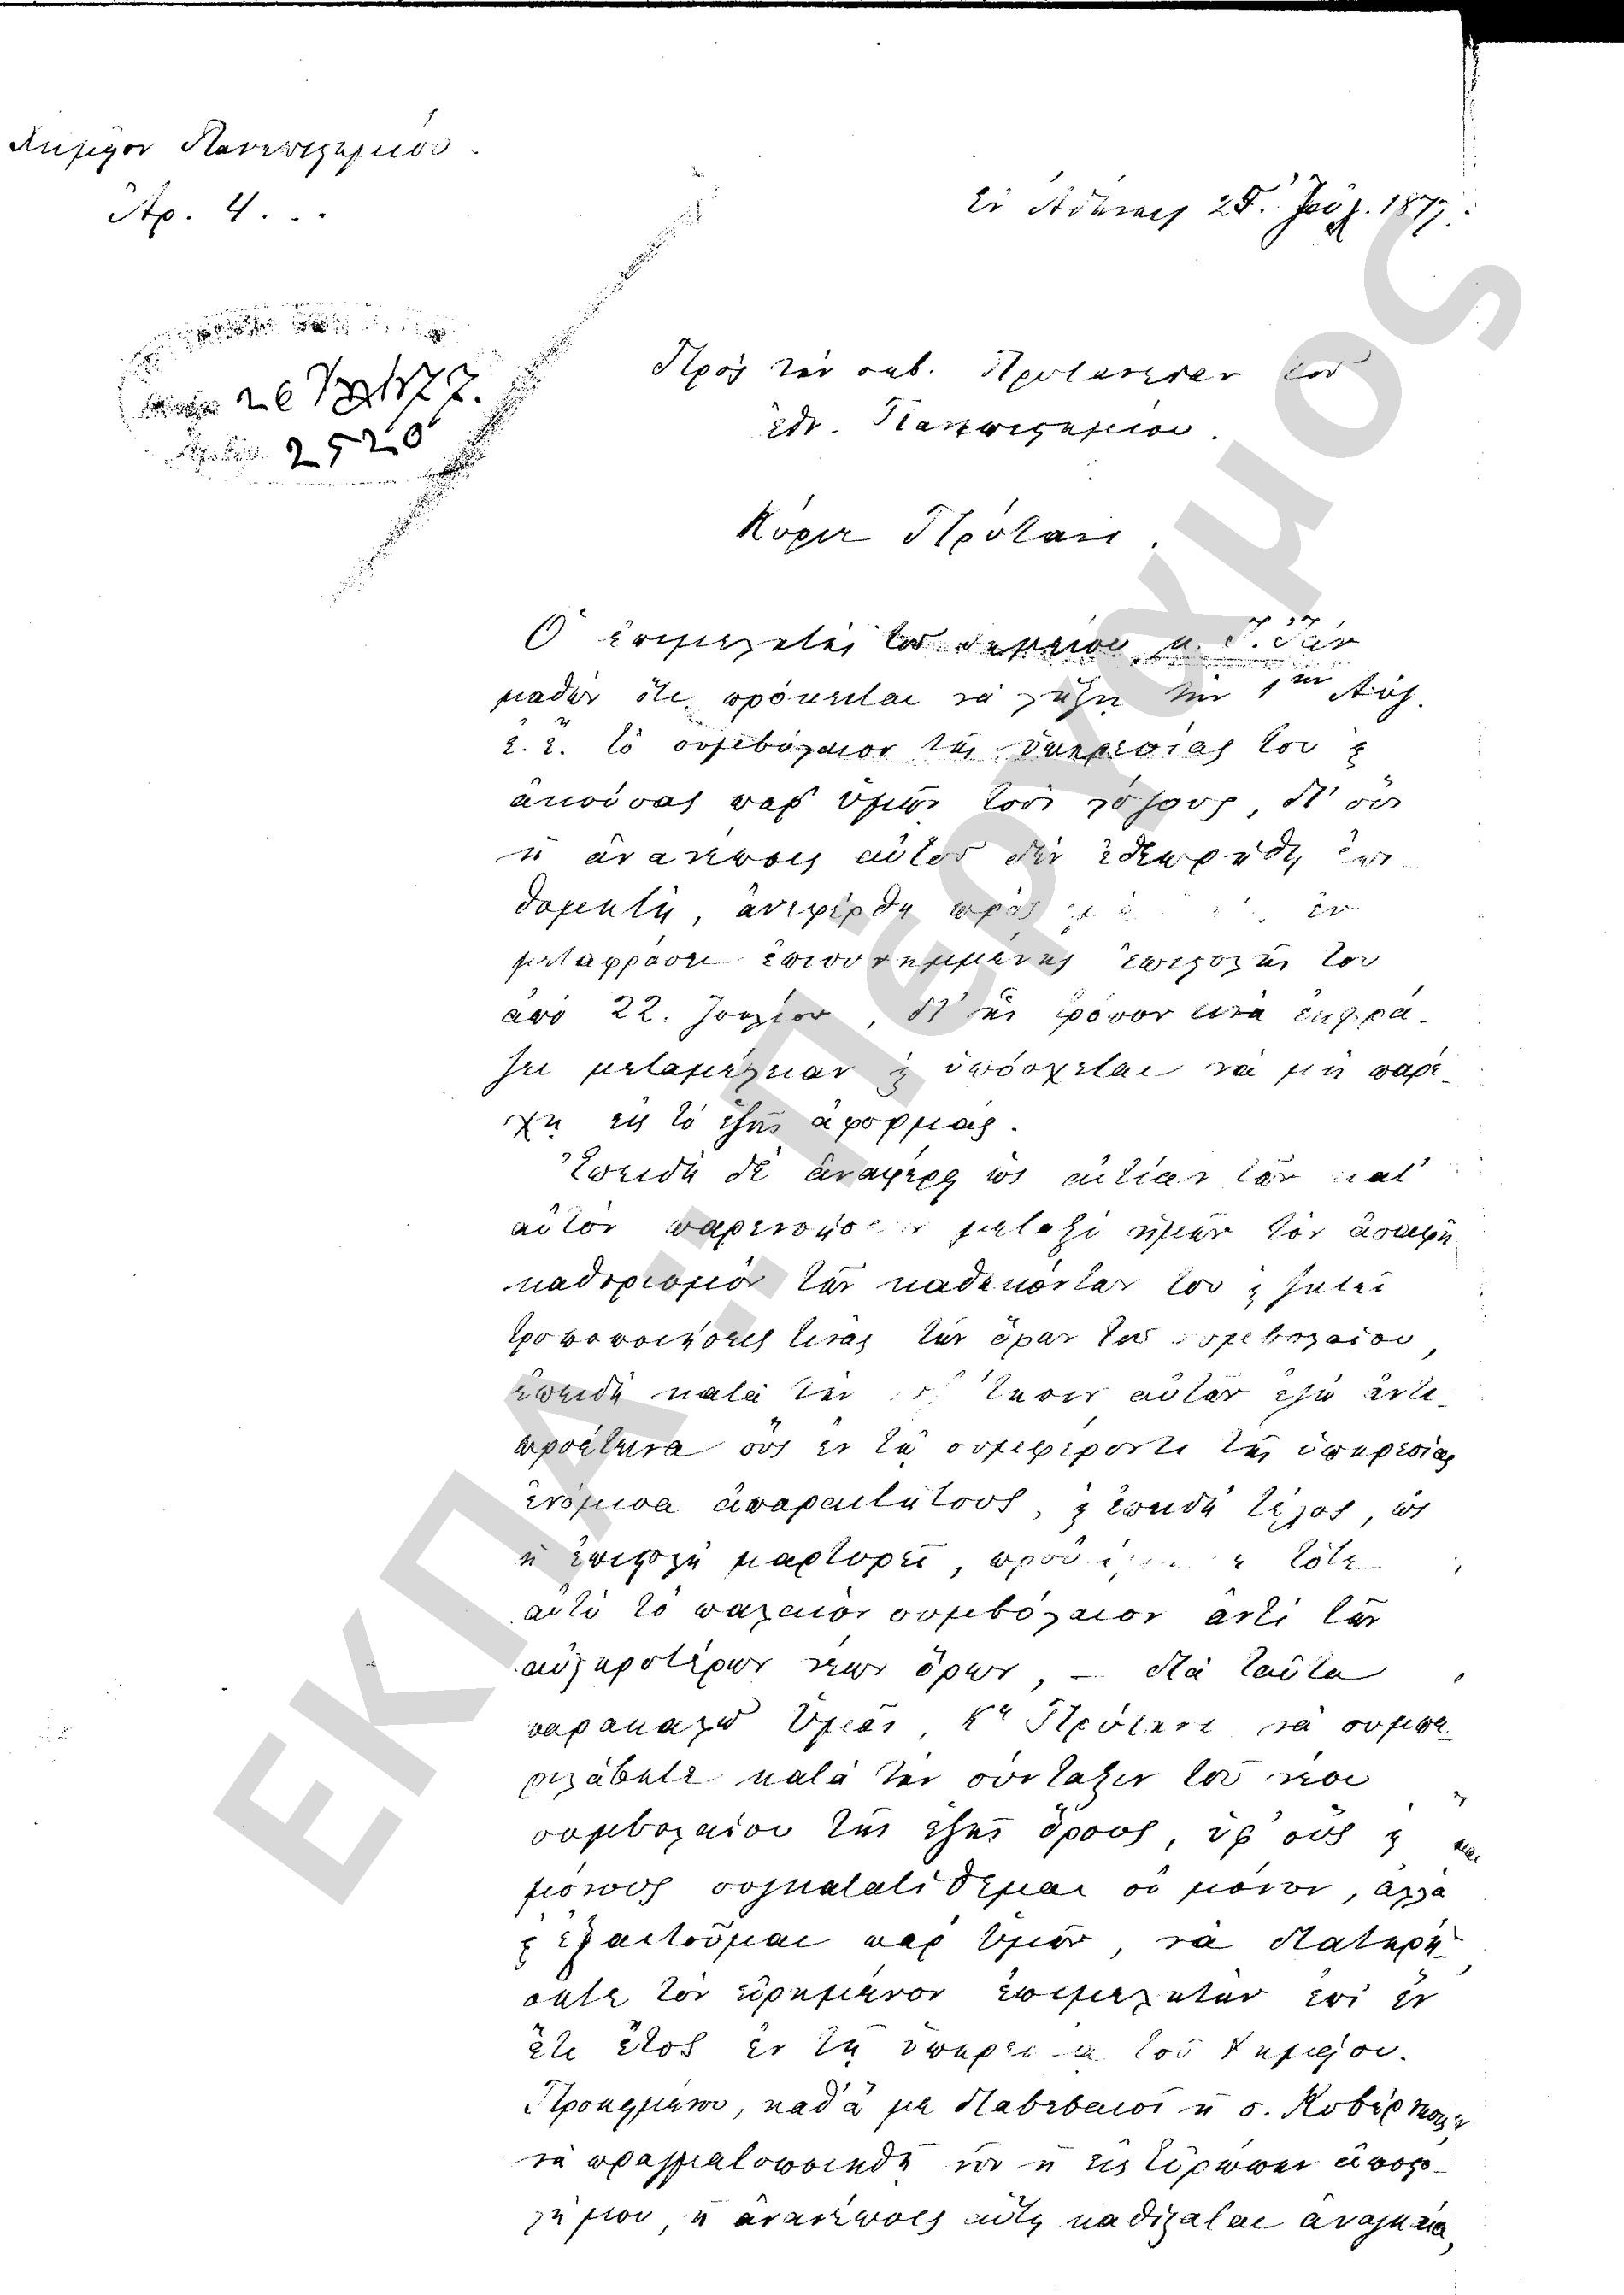 Χημεῖον Πανεπιστημίου.
Ἀρ. 4...
Ἐν Ἀθήναις 25. Ἰουλ. 1877.
26 1877.
2520
Πρὸς τὴν σεβ. Πρυτανείαν τοῦ
ἐθν. Πανεπιστημίου.
Κύριε Πρύτανι.
Ὁ ἐπιμελητὴς τοῦ χημείου κ.
μαθὼν ὅτι πρόκειται νὰ λήξῃ τὴν 1ην Αὐγ.
ἐ. ἔ. τὸ συμβόλαιον τῆς ὑπηρεσίας του καὶ
ἀκούσας παρ' ὑμῶν τοὺς λόγους, δι' οὓς
ἡ ἀνανέωσις αὐτοῦ δὲν ἐθεωρήθη ἐπι-
θυμητή, ἀνεφέρθη πρὸς ἐν
μεταφράσει ἐπισυνημμένης ἐπιστολῆς του
ἀπὸ 22. Ἰουλίου, δι' ἧς τρόπον τινὰ ἐκφρά-
ζει μεταμέλειαν καὶ ὑπόσχεται νὰ μὴ παρέ-
χῃ εἰς τὸ ἑξῆς ἀφορμάς.
Ἐπειδὴ δὲ ἀναφέρει ὡς αἰτίαν τῶν κατ'
αὐτὸν παρεξηγήσεων μεταξὺ ἡμῶν τὸν ἀσαφῆ
καθορισμὸν τῶν καθηκόντων του καὶ ζητεῖ
τροποποιήσεις τινὰς τῶν ὅρων τοῦ συμβολαίου,
ἐπειδὴ κατὰ τὴν αὐτῶν ἐγὼ ἀντι-
προέτεινα οὓς ἐν τῷ συμφέροντι τῆς ὑπηρεσίας
ἐνόμισα ἀπαραιτήτους, καὶ ἐπειδὴ τέλος, ὡς
ἡ ἐπιστολὴ μαρτυρεῖ, τότε
αὐτὸ τὸ παλαιὸν συμβόλαιον ἀντὶ τῶν
αὐστηροτέρων νέων ὅρων, — διὰ ταῦτα
παρακαλῶ Ὑμᾶς, Κε Πρύτανι νὰ συμπε-
ριλάβητε κατὰ τὴν σύνταξιν τοῦ νέου
συμβολαίου τοὺς ἑξῆς ὅρους, ὑφ' οὓς καὶ
μόνους συγκατατίθεμαι οὐ μόνον, ἀλλὰ
καὶ ἐξαιτοῦμαι παρ' Ὑμῶν, νὰ διατηρή-
σητε τὸν εἰρημένον ἐπιμελητὴν ἐπὶ ἓν
ἔτι ἔτος ἐν τῇ ὑπηρεσίᾳ τοῦ Χημείου.
Προκειμένου, καθ' ἃ με διαβεβαιοῖ ἡ σ. Κυβέρνησις
νὰ πραγματοποιηθῇ νῦν ἡ εἰς Εὐρώπην ἀποστο-
λή μου, ἡ ἀνανέωσις αὕτη καθίσταται ἀναγκαία,
ΕΚΠΑ.: Πέργαμος